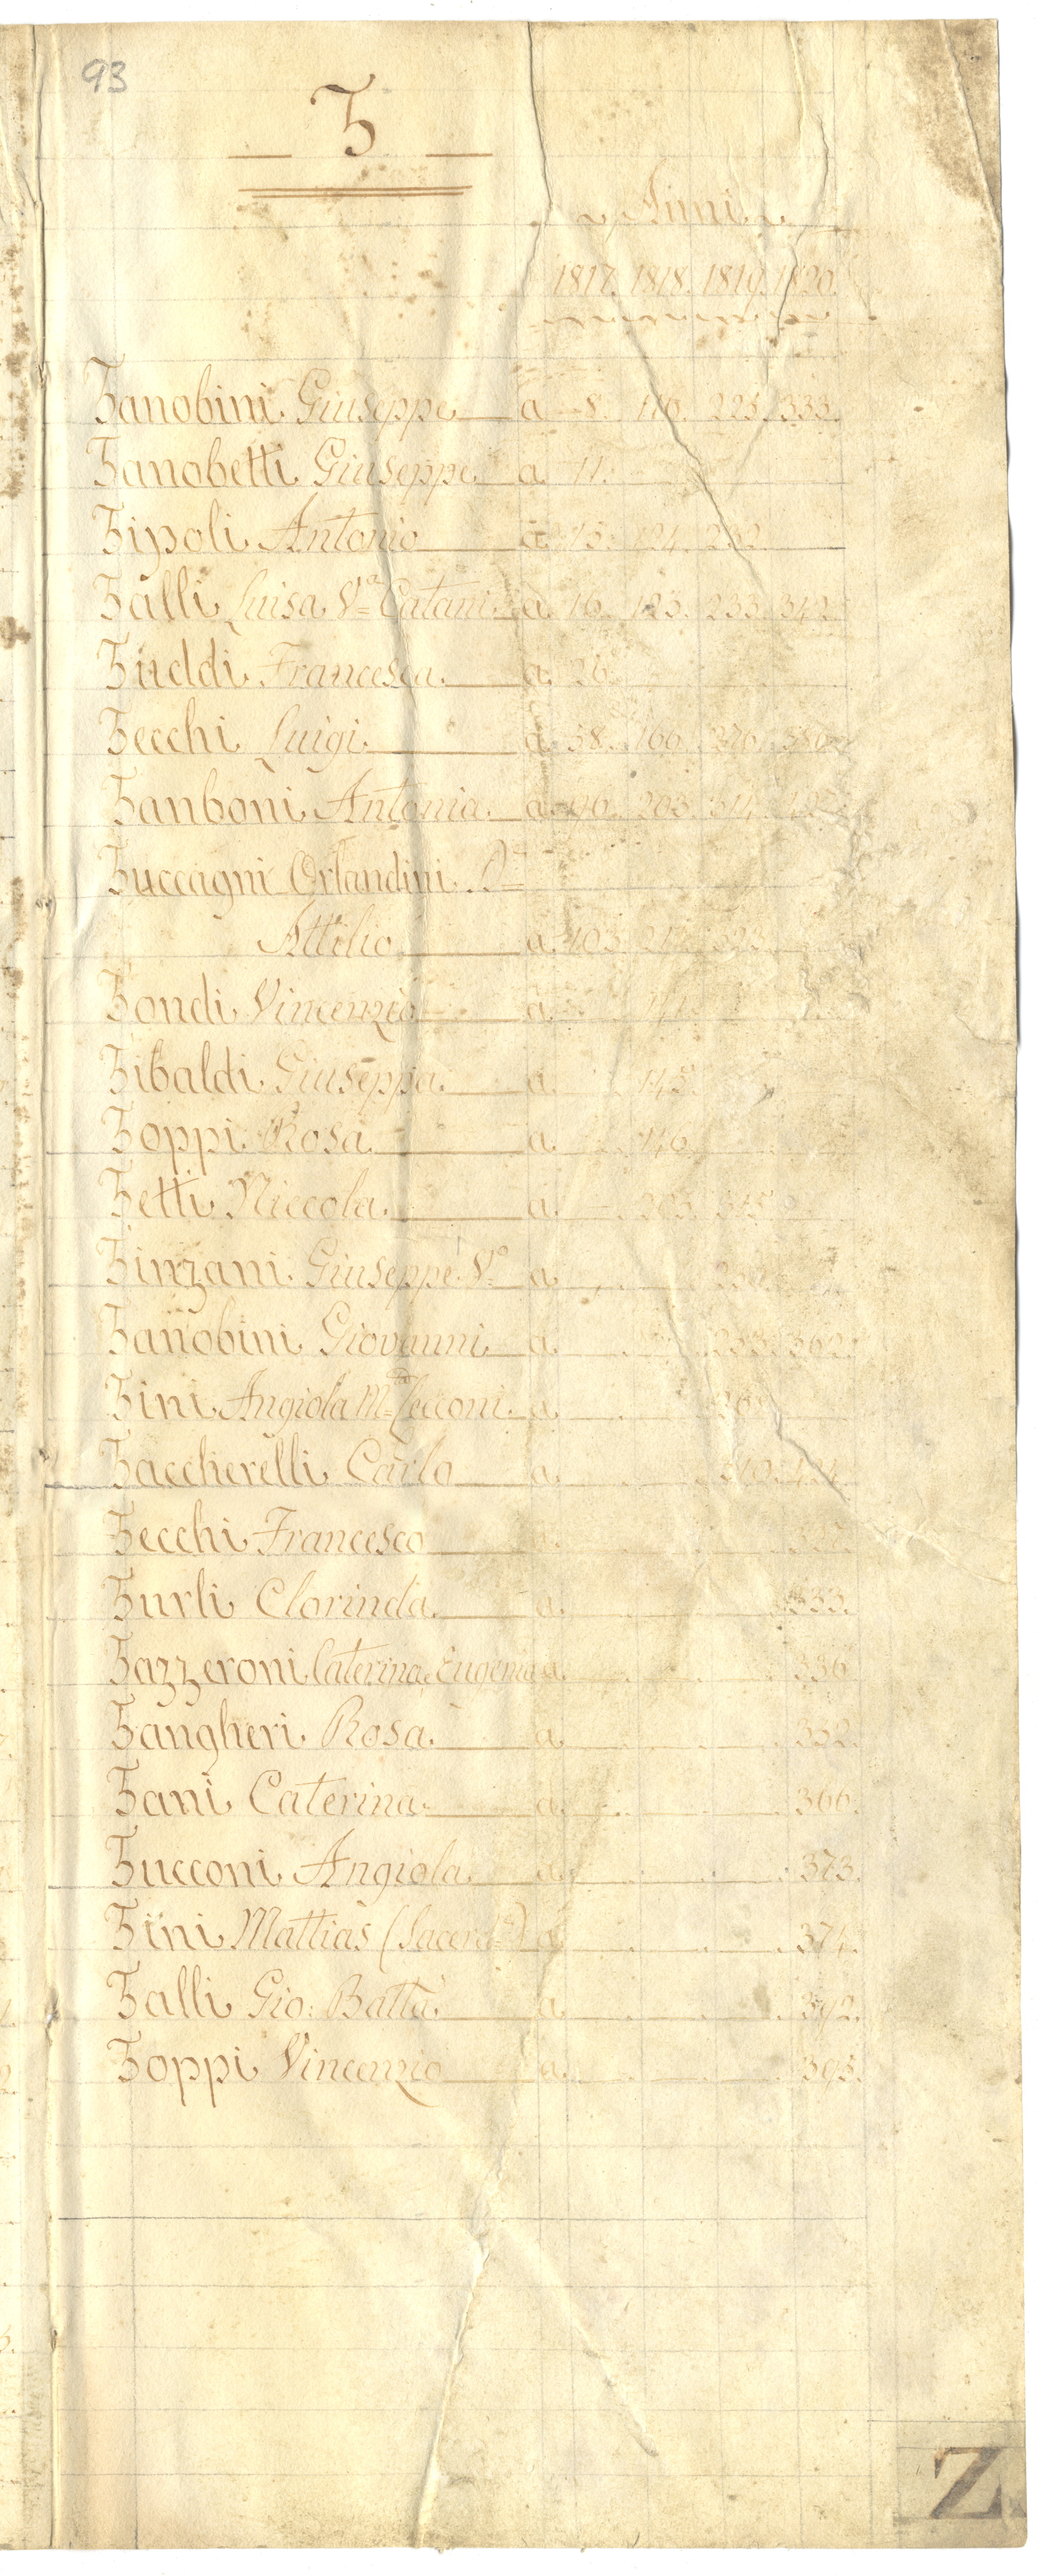 93
Z
Anni
1817. 1818. 1819. 1820.
Zanobini Giuseppe a 8. 116. 225. 333.
Zanobetti Giuseppe a 11.
Zipoli Antonio a 15. 124. 232.
Zalli Luisa Vª Catani a 16. 123. 233. 342.
Zuddi Francesca a 26.
Zecchi Luigi a 58. 166. 276.
Zanboni Antonia a 96. 203. 314.
Zuccagni Orlandini
Attilio a 103.
Zondi Vincenzio a
Zibaldi Giuseppa a 145.
Zoppi Rosa a 146.
Zetti Niccola a 203. 315.
Zinzani Giuseppe Vº a
Zanobini Giovanni a 253. 362.
Zini Angiola Mª Cecconi a
Zaccherelli Carlo a
Zecchi Francesco a
Zurli Clorinda a 333.
Zazzeroni Caterina, Eugenia a 336.
Zangheri Rosa a 352.
Zani Caterina a 366.
Zucconi Angiola a 373.
Zini Mattias (Sacerdᵉ) a 374.
Zalli Gio: Batta a 392.
Zoppi Vincenzio a 395.
Z